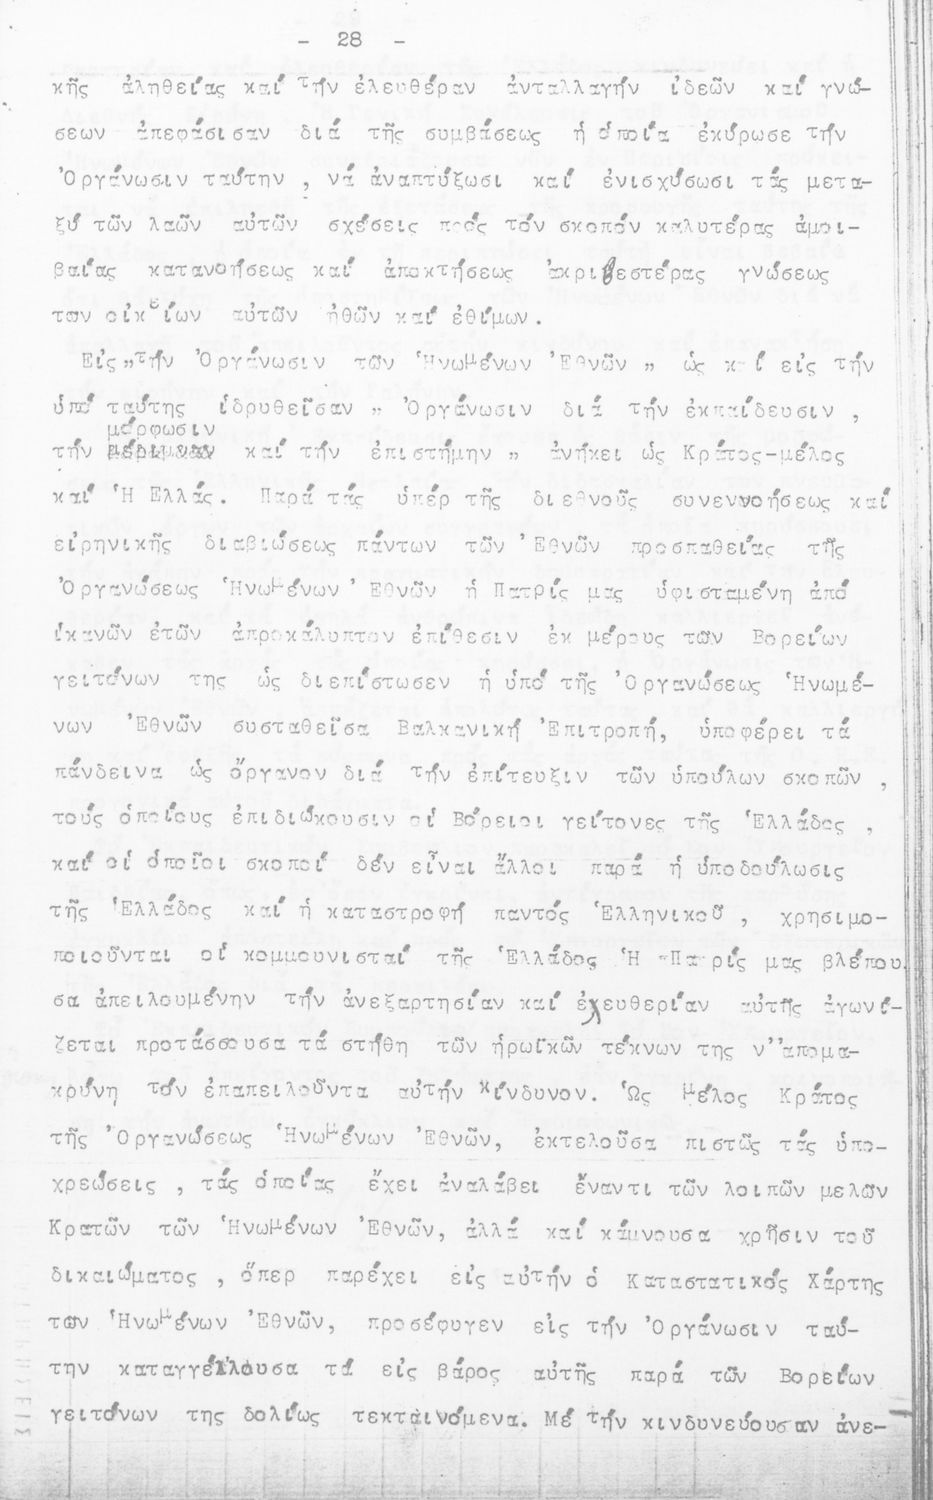 - 28 -
κῆς ἀληθείας καί τήν ἐλευθέραν ἀνταλλαγήν ἰδεῶν καί γνώ-
σεων ἀπεφάσισαν διά τῆς συμβάσεως ἡ ὁποία ἐκύρωσε τήν
Ὀργάνωσιν ταύτην , νά ἀναπτύξωσι καί ἐνισχύσωσι τάς μετα-
ξύ τῶν λαῶν αὐτῶν σχέσεις πρός τόν σκοπόν καλυτέρας ἀμοι-
βαίας κατανοήσεως καί ἀποκτήσεως ἀκριβεστέρας γνώσεως
των οἰκείων αὐτῶν ἠθῶν καί ἐθίμων.
Εἰς„τήν Ὀργάνωσιν τῶν Ἡνωμένων Ἐθνῶν „ ὡς καί εἰς τήν
ὑπό ταύτης ἱδρυθεῖσαν „ Ὀργάνωσιν διά τήν ἐκπαίδευσιν ,
μόρφωσιν
τήν μέριμναν καί τήν ἐπιστήμην „ ἀνήκει ὡς Κράτος-μέλος
καί Ἡ Ἑλλάς. Παρά τας ὑπέρ τῆς διεθνοῦς συνεννοήσεως καί
εἰρηνικῆς διαβιώσεως πάντων τῶν Ἐθνῶν προσπαθείας τῆς
Ὀργανώσεως Ἡνωμένων Ἐθνῶν ἡ Πατρίς μας ὑφισταμένη ἀπό
ἱκανῶν ἐτῶν ἀπροκάλυπτον ἐπίθεσιν ἐκ μέρους τῶν Βορείων
γειτόνων της ὡς διεπίστωσεν ἡ ὑπό τῆς Ὀργανώσεως Ἡνωμέ-
νων Ἐθνῶν συσταθεῖσα Βαλκανική Ἐπιτροπή, ὑποφέρει τά
πάνδεινα ὡς ὄργανον διά τήν ἐπίτευξιν τῶν ὑπούλων σκοπῶν ,
τούς ὁποίους ἐπιδιώκουσιν οἱ Βόρειοι γείτονες τῆς Ἑλλάδος ,
καί οἱ ὁποῖοι σκοποί δέν εἶναι ἄλλοι παρά ἡ ὑποδούλωσις
τῆς Ἑλλάδος καί ἡ καταστροφή παντός Ἑλληνικοῦ , χρησιμο-
ποιοῦνται οἱ κομμουνισταί τῆς Ἑλλάδος. Ἡ Πατρίς μας βλέπου
σα ἀπειλουμένην τήν ἀνεξαρτησίαν καί ἐλευθερίαν αὐτῆς ἀγωνί-
ζεται προτάσσουσα τά στήθη τῶν ἡρωϊκῶν τέκνων της ν'ἀπομα-
κρύνη τόν ἐπαπειλοῦντα αὐτήν κίνδυνον. Ὡς μέλος Κράτος
τῆς Ὀργανώσεως Ἡνωμένων Ἐθνῶν, ἐκτελοῦσα πιστῶς τάς ὑπο-
χρεώσεις , τάς ὁποίας ἔχει ἀναλάβει ἔναντι τῶν λοιπῶν μελῶν
Κρατῶν τῶν Ἡνωμένων Ἐθνῶν, ἀλλά καί κάμνουσα χρῆσιν τοῦ
δικαιώματος , ὅπερ παρέχει εἰς αὐτήν ὁ Καταστατικός Χάρτης
των Ἡνωμένων Ἐθνῶν, προσέφυγεν εἰς τήν Ὀργάνωσιν ταύ-
την καταγγέλλουσα τά εἰς βάρος αὐτῆς παρά τῶν Βορείων
γειτόνων της δολίως τεκταινόμενα. Μέ τήν κινδυνεύουσαν ἀνε-